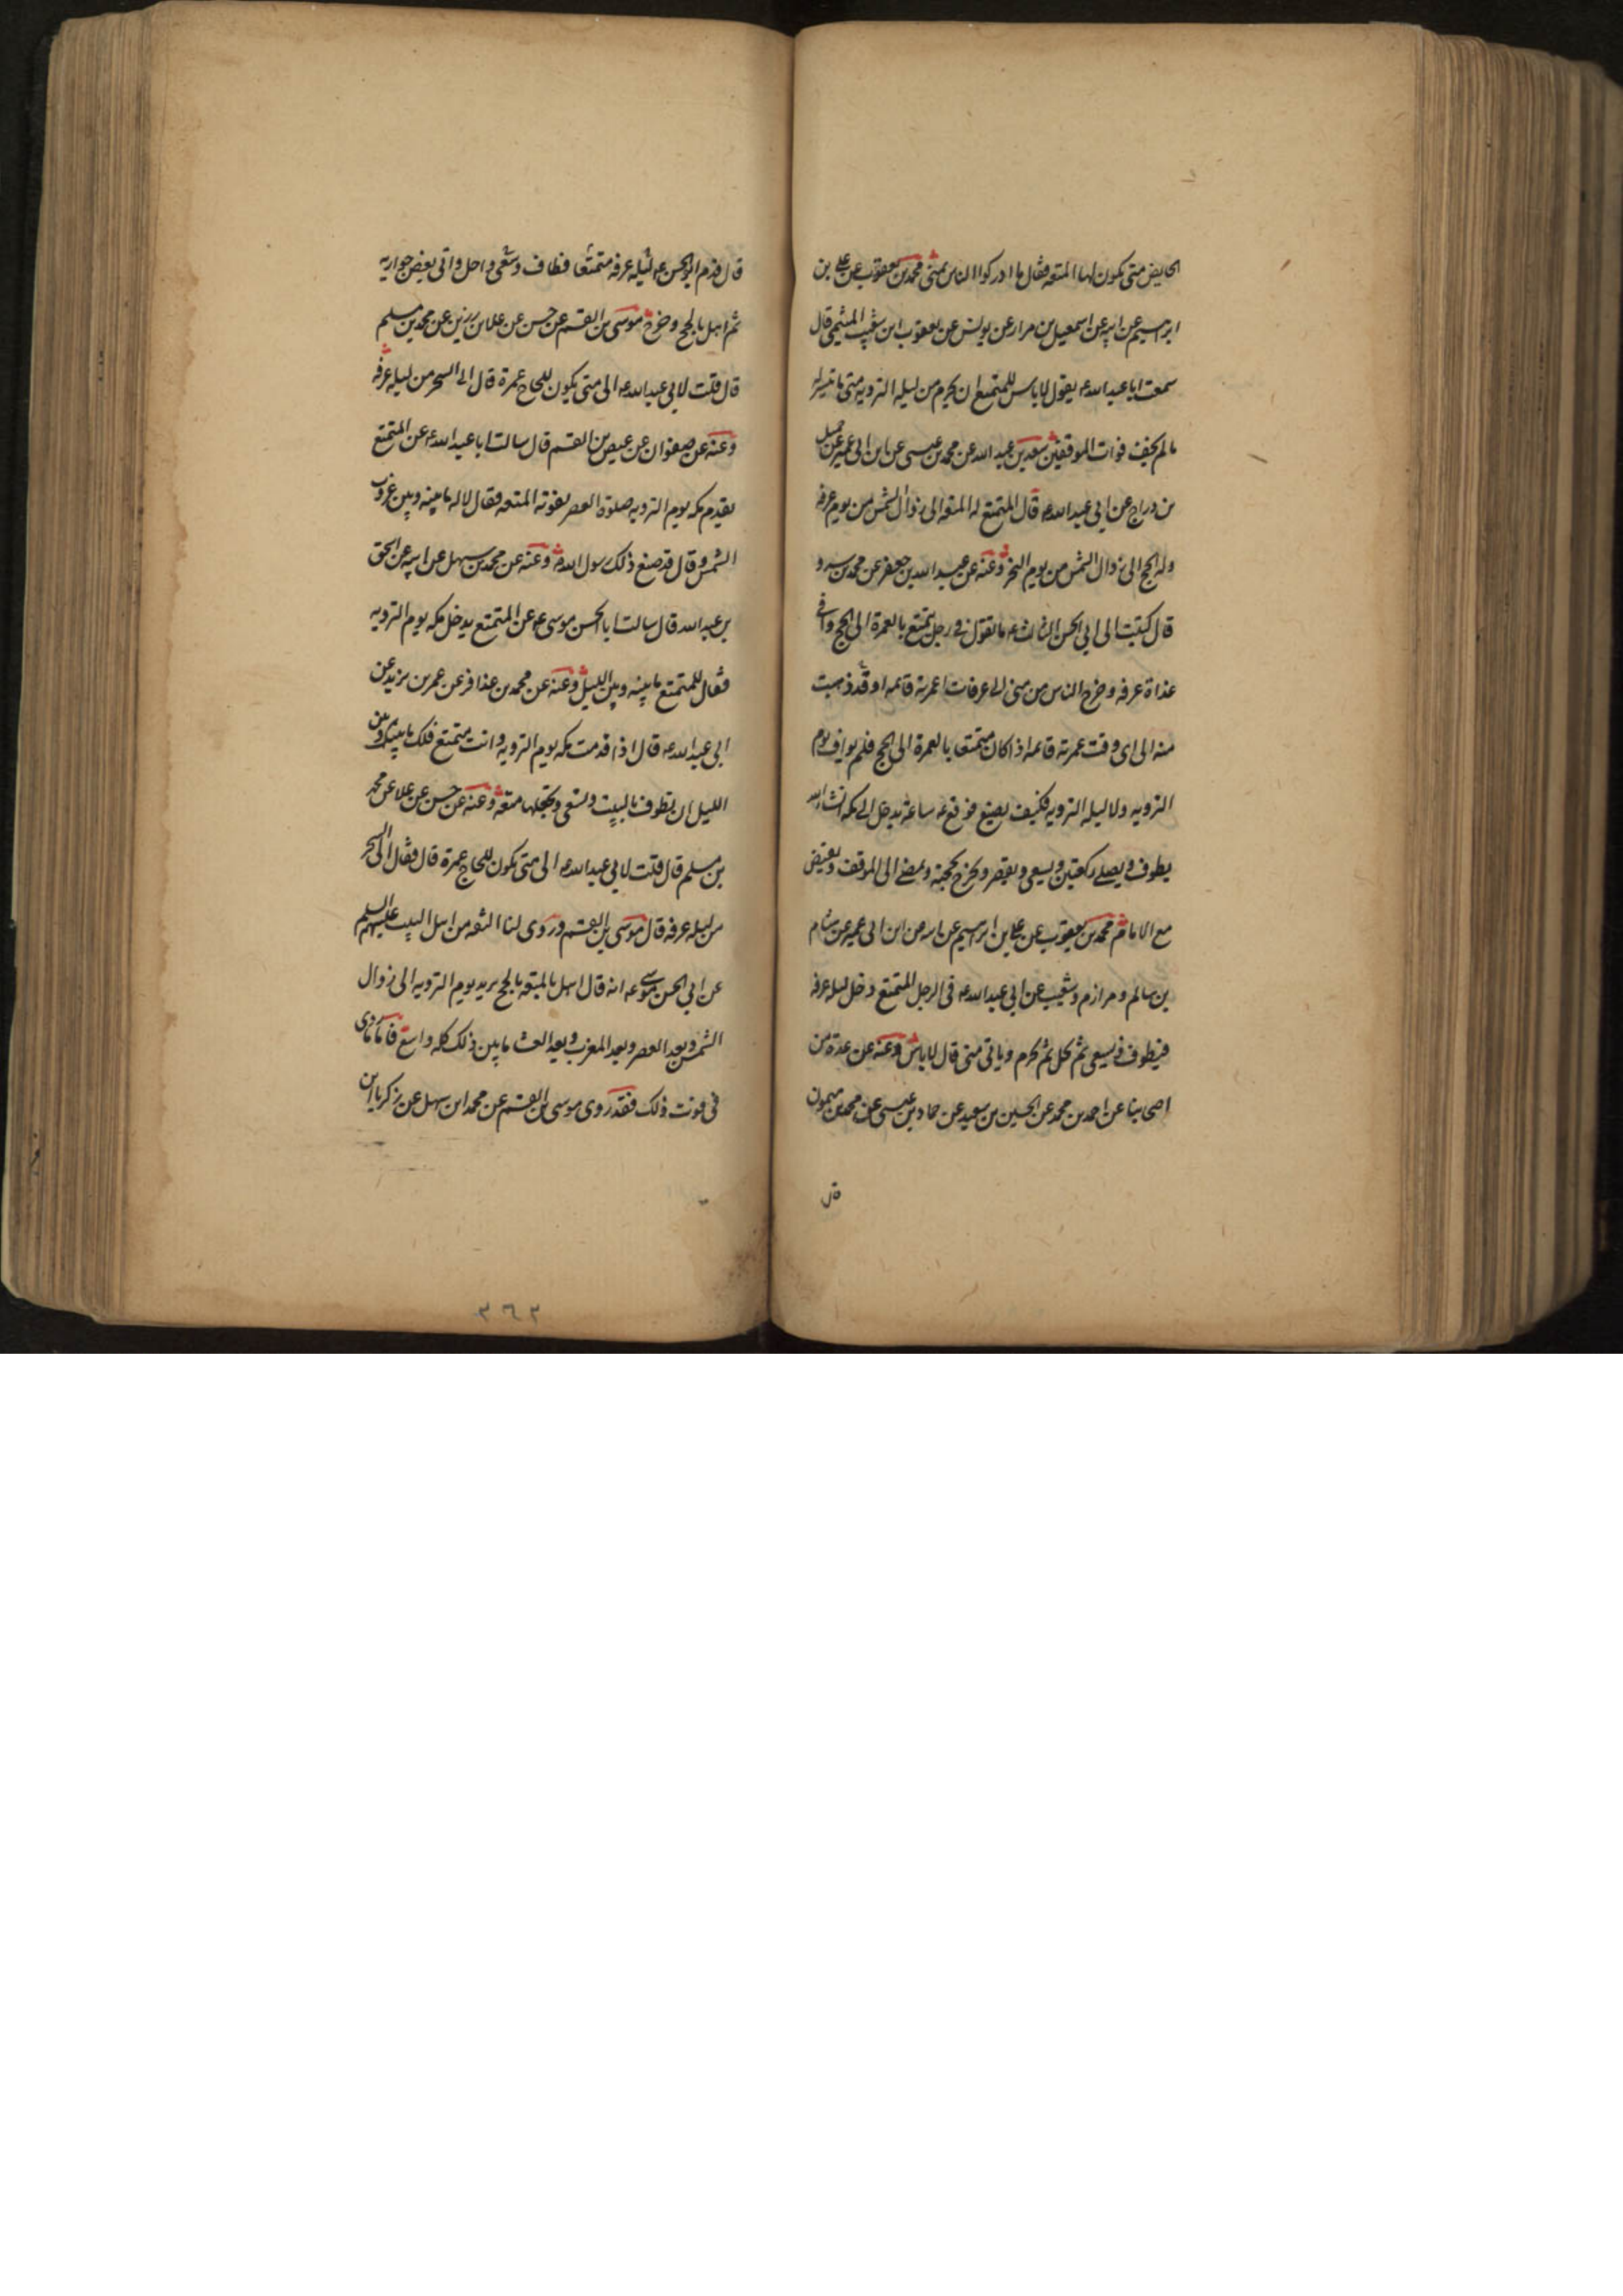 الحايض متى يكون لها المتعه فقال ما ادركوا الناس بمنى محمد بن يعقوب عن على بن
ابرهيم عن ابيه عن اسمعيل بن مرار عن يونس عن يعقوب ابن شعيب الميثمى قال
سمعت ابا عبد الله ع يقول لا باس للمتمتع ان يحرم من ليله الترويه متى ما تيسر له
ما لم يخف فوات الموقفين سعد بن عبد الله عن محمد بن عيسى عن ابن ابى عمير عن جميل
بن دراج عن ابى عبد الله ع قال المتمتع له المتعه الى زوال الشمس من يوم عرفه
وله الحج الى زوال الشمس من يوم النحر وعنه عن عبد الله بن جعفر عن محمد بن سرو
قال كتبت الى ابى الحسن الثالث ع ما تقول فى رجل يتمتع بالعمرة الى الحج وافى
غداة عرفه وخرج الناس من منى الى عرفات اعمرته قائمه او قد ذهبت
منه الى اى وقت عمرته قائمه اذا كان متمتعا بالعمرة الى الحج فلم يواف يوم
الترويه ولا ليله الترويه فكيف يصنع فوقع ع ساعة يدخل الى مكه انشاء الله
يطوف ويصلى ركعتين ويسعى ويقصر ويخرج بحجته ويمضى الى الموقف ويفيض
مع الامام محمد بن يعقوب عن على بن ابرهيم عن ابيه عن ابن ابى عمير عن هشام
بن سالم ومرازم وشعيب عن ابى عبد الله ع فى الرجل المتمتع دخل ليله عرفه
فيطوف ويسعى ثم يحل ثم يحرم وياتى منى قال لا باس وعنه عن عدة من
اصحابنا عن احمد بن محمد عن الحسين بن سعيد عن حماد بن عيسى عن محمد بن ميمون
قال
قال قدم ابو الحسن ع ليله عرفه متمتعا فطاف وسعى واحل واتى بعض جواريه
ثم اهل بالحج وخرج موسى بن القسم عن حسن عن علا بن رزين عن محمد بن مسلم
قال قلت لابى عبد الله ع الى متى يكون للحاج عمرة قال الى السحر من ليله عرفه
وعنه عن صفوان عن عيص بن القسم قال سالت ابا عبد الله ع عن المتمتع
يقدم مكه يوم الترويه صلوة العصر تفوته المتعه فقال لا له ما بينه وبين غروب
الشمس وقال قد صنع ذلك رسول الله ص وعنه عن محمد بن سهل عن ابيه عن اسحق
بن عبد الله قال سالت ابا الحسن موسى ع عن المتمتع يدخل مكه يوم الترويه
فقال للمتمتع ما بينه وبين الليل وعنه عن محمد بن عذافر عن عمر بن يزيد عن
ابى عبد الله ع قال اذا قدمت مكه يوم الترويه وانت متمتع فلك ما بينك وبين
الليل ان تطوف بالبيت وتسعى وتجعلها متعه وعنه عن حسن عن علا عن محمد
بن مسلم قال قلت لابى عبد الله ع الى متى يكون للحاج عمرة قال فقال الى السحر
من ليله عرفه قال موسى بن القسم وروى لنا الثقه من اهل البيت عليهم السلم
عن ابى الحسن موسى ع انه قال اهل بالمتعه بالحج يريد يوم الترويه الى زوال
الشمس وبعد العصر وبعد المغرب وبعد العشا ما بين ذلك كله واسع فاما ما روى
فى فوت ذلك فقد روى موسى بن القسم عن محمد ابن سهل عن زكريا ابن
٣٦٢